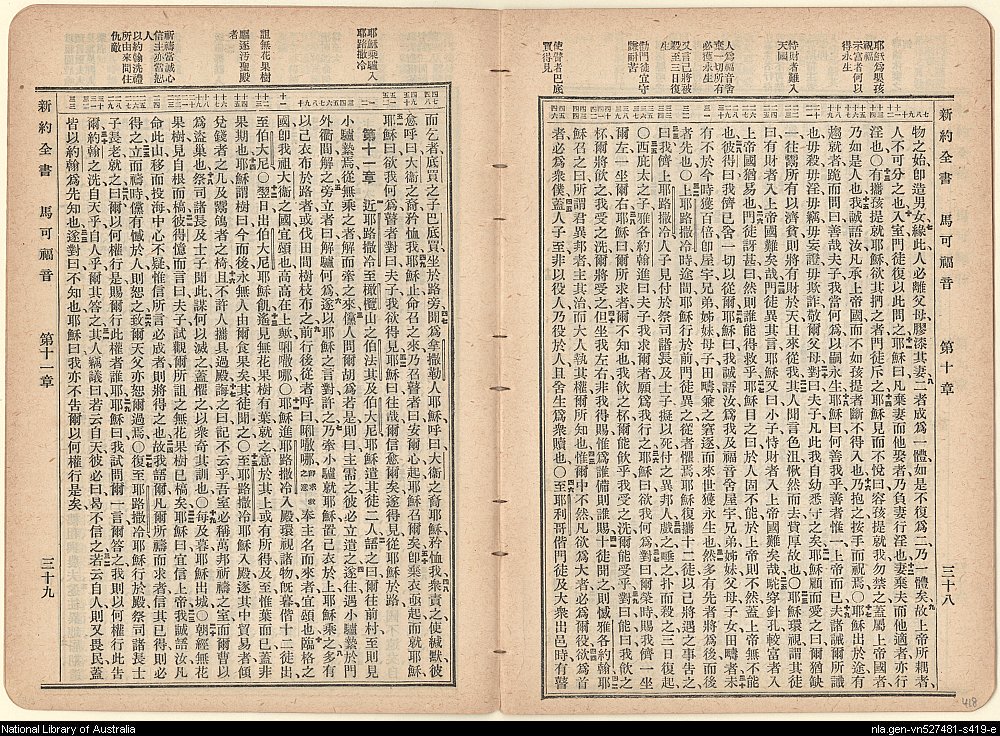 新約全書 馬可福音 第十章 三十八
耶穌為嬰孩
視福
示富者何以
得永生
恃財者難入
天國
人為福音舍
棄一切所有
必獲永生
又言己將被
殺至三日復
生
勸門徒宜守
謙耐苦
使瞽者巴底
買得見
物之始卽造男女緣此人必離父母膠漆其妻二者成為一體如是不復為二乃一體矣故上帝所耦者
人不可分之也入室門徒復以此問之耶穌曰凡棄妻而他娶者乃負妻行淫也妻棄夫而他適者亦行
淫也○有攜孩提就耶穌欲其捫之者門徒斥之耶穌見而不悅曰容孩提就我勿禁之蓋屬上帝國者
乃如是人也我誠語汝凡承上帝國而不如孩提者斷不得入也乃抱之按手而祝焉○耶穌出於途有
趨就者跪而問曰善夫子我當何為以嗣永生耶穌曰何善我乎善者惟一帝而已夫諸誡爾所識
也毋殺毋淫毋竊毋妄證毋欺詐敬爾父母對曰夫子凡此我自幼悉守之矣耶穌顧而愛之曰爾猶缺
一往鬻所有以濟貧則將有財於天且來從我其人聞言色沮愀然而去貲厚故也○耶穌環視謂其徒
曰有財者入上帝國難矣哉門徒異其言耶穌又曰小子恃財者入上帝國難矣哉駝穿針孔較富者入
上帝國猶易也門徒訝甚曰然則誰能得救乎耶穌目之曰於人固不能於上帝則不然蓋上帝無不能
也彼得曰我儕已舍一切以從耶穌曰我誠語汝為我及福音舍屋宇兄弟姊妹父母子女田疇者未
有不於今時獲百倍卽屋宇兄弟姊妹母子田疇兼之窘逐而來世獲永生也然多有先者將為後後
者先也○上耶路撒冷時途間耶穌行於前門徒異之從者懼焉耶穌復攜十二徒以己將遇之事告之
曰我儕上耶路撒冷人子見付於祭司諸長及士子擬以死付之異邦人戲之唾之扑而殺之三日復起
○西庇太之子雅各約翰進曰夫子我所求爾者願為我行之耶穌曰欲我何為曰爾榮時賜我儕一坐
爾左一坐爾右耶穌曰爾所求者爾不知也我飲之杯爾能飲乎我受之洗爾能受乎對曰能曰我飲之
杯爾將飲之我受之洗爾將受之但坐我左右非我得賜惟為誰備則誰賜十徒聞之則憾雅各約翰耶
穌召之曰爾所謂君異邦者主其治而大人執其權惟爾中不然凡欲為大者必為爾役欲為首
者必為衆僕蓋人子至非以役人乃役於人且舍生為衆贖也○至耶利哥偕門徒及大衆出邑時有瞽
耶穌乘驢入
耶路撒冷
詛無花果樹
驅逐汚聖殿
者
祈禱當誠心
信主亦當恕
人
以約翰洗禮
所由來問住
仇敵
而乞者底買之子巴底買坐於路旁聞為拿撒勒人耶穌呼曰大衛之裔耶穌矜恤我衆責之使緘默彼
愈呼曰大衛之裔矜恤我耶穌止命召之乃召瞽者曰安爾心起耶穌召爾矣卽棄衣而起而就耶穌
耶穌曰欲我何為瞽者對曰夫子我欲得見耶穌曰往哉爾信愈爾矣遂得見從耶穌於路
第十一章 近耶路撒冷至橄欖山之伯法其及伯大尼耶穌遣其徒二人語之曰爾往前村至則見
小驢縶焉從無乘之者解而牽之來儻人問爾胡為若是則曰主需之彼必立遣之遂往遇小驢縶於門
外衢間解之旁立者曰解驢何為遂以耶穌之言對許之乃牽小驢就耶穌置己衣於上耶穌乘之多有
以己衣布於路者或伐田間樹枝布之前行後從者呼曰㗌嗷哪奉主名而來者宜頌也臨格之
國卽我祖大衛之國宜頌也高高在上歟㗌嗷哪○耶穌進耶路撒冷入殿環視諸物旣暮偕十二徒出
至伯大尼○翌日出伯大尼耶穌飢遙見無花果樹有葉就之意於其上或有所得及至惟葉而已蓋非
果期也耶穌謂樹曰今而後永無人由爾食果矣其徒聞之○至耶路撒冷耶穌入殿逐其中貿易者傾
兌錢者之几及鬻鴿者之椅且不許人攜具過殿誨之曰記不云乎吾室必稱萬邦祈禱之室而爾曹以
為盜巢也祭司諸長及士子聞此謀何以滅之蓋懼之以衆奇其訓也○每及暮耶穌出城○朝經無花
果樹見自根而槁彼得憶而言曰夫子試觀爾所詛之無花果樹已槁矣耶穌曰宜信上帝我誠語汝凡
命此山移而投海中心不疑惟信所言必成者則將得之也故我語爾凡爾所禱而求者信其已得則必
得之立而禱時儻有憾於人則恕之致爾天父亦恕爾過焉○復至耶路撒冷耶穌行於殿祭司諸長士
子長老就之曰爾以何權行是賜爾行此權者誰耶耶穌曰我試問爾一言爾答之我則以何權行此告
爾約翰之洗自天乎自人乎爾其答之其人竊議曰若云自天彼必曰曷不信之若云自人則又畏民蓋
皆以約翰為先知也遂對曰不知也耶穌曰我亦不告爾以何權行是矣
新約全書 馬可福音 第十一章 三十九
418
National Library of Australia
nla.gen-vn527481-s419-e